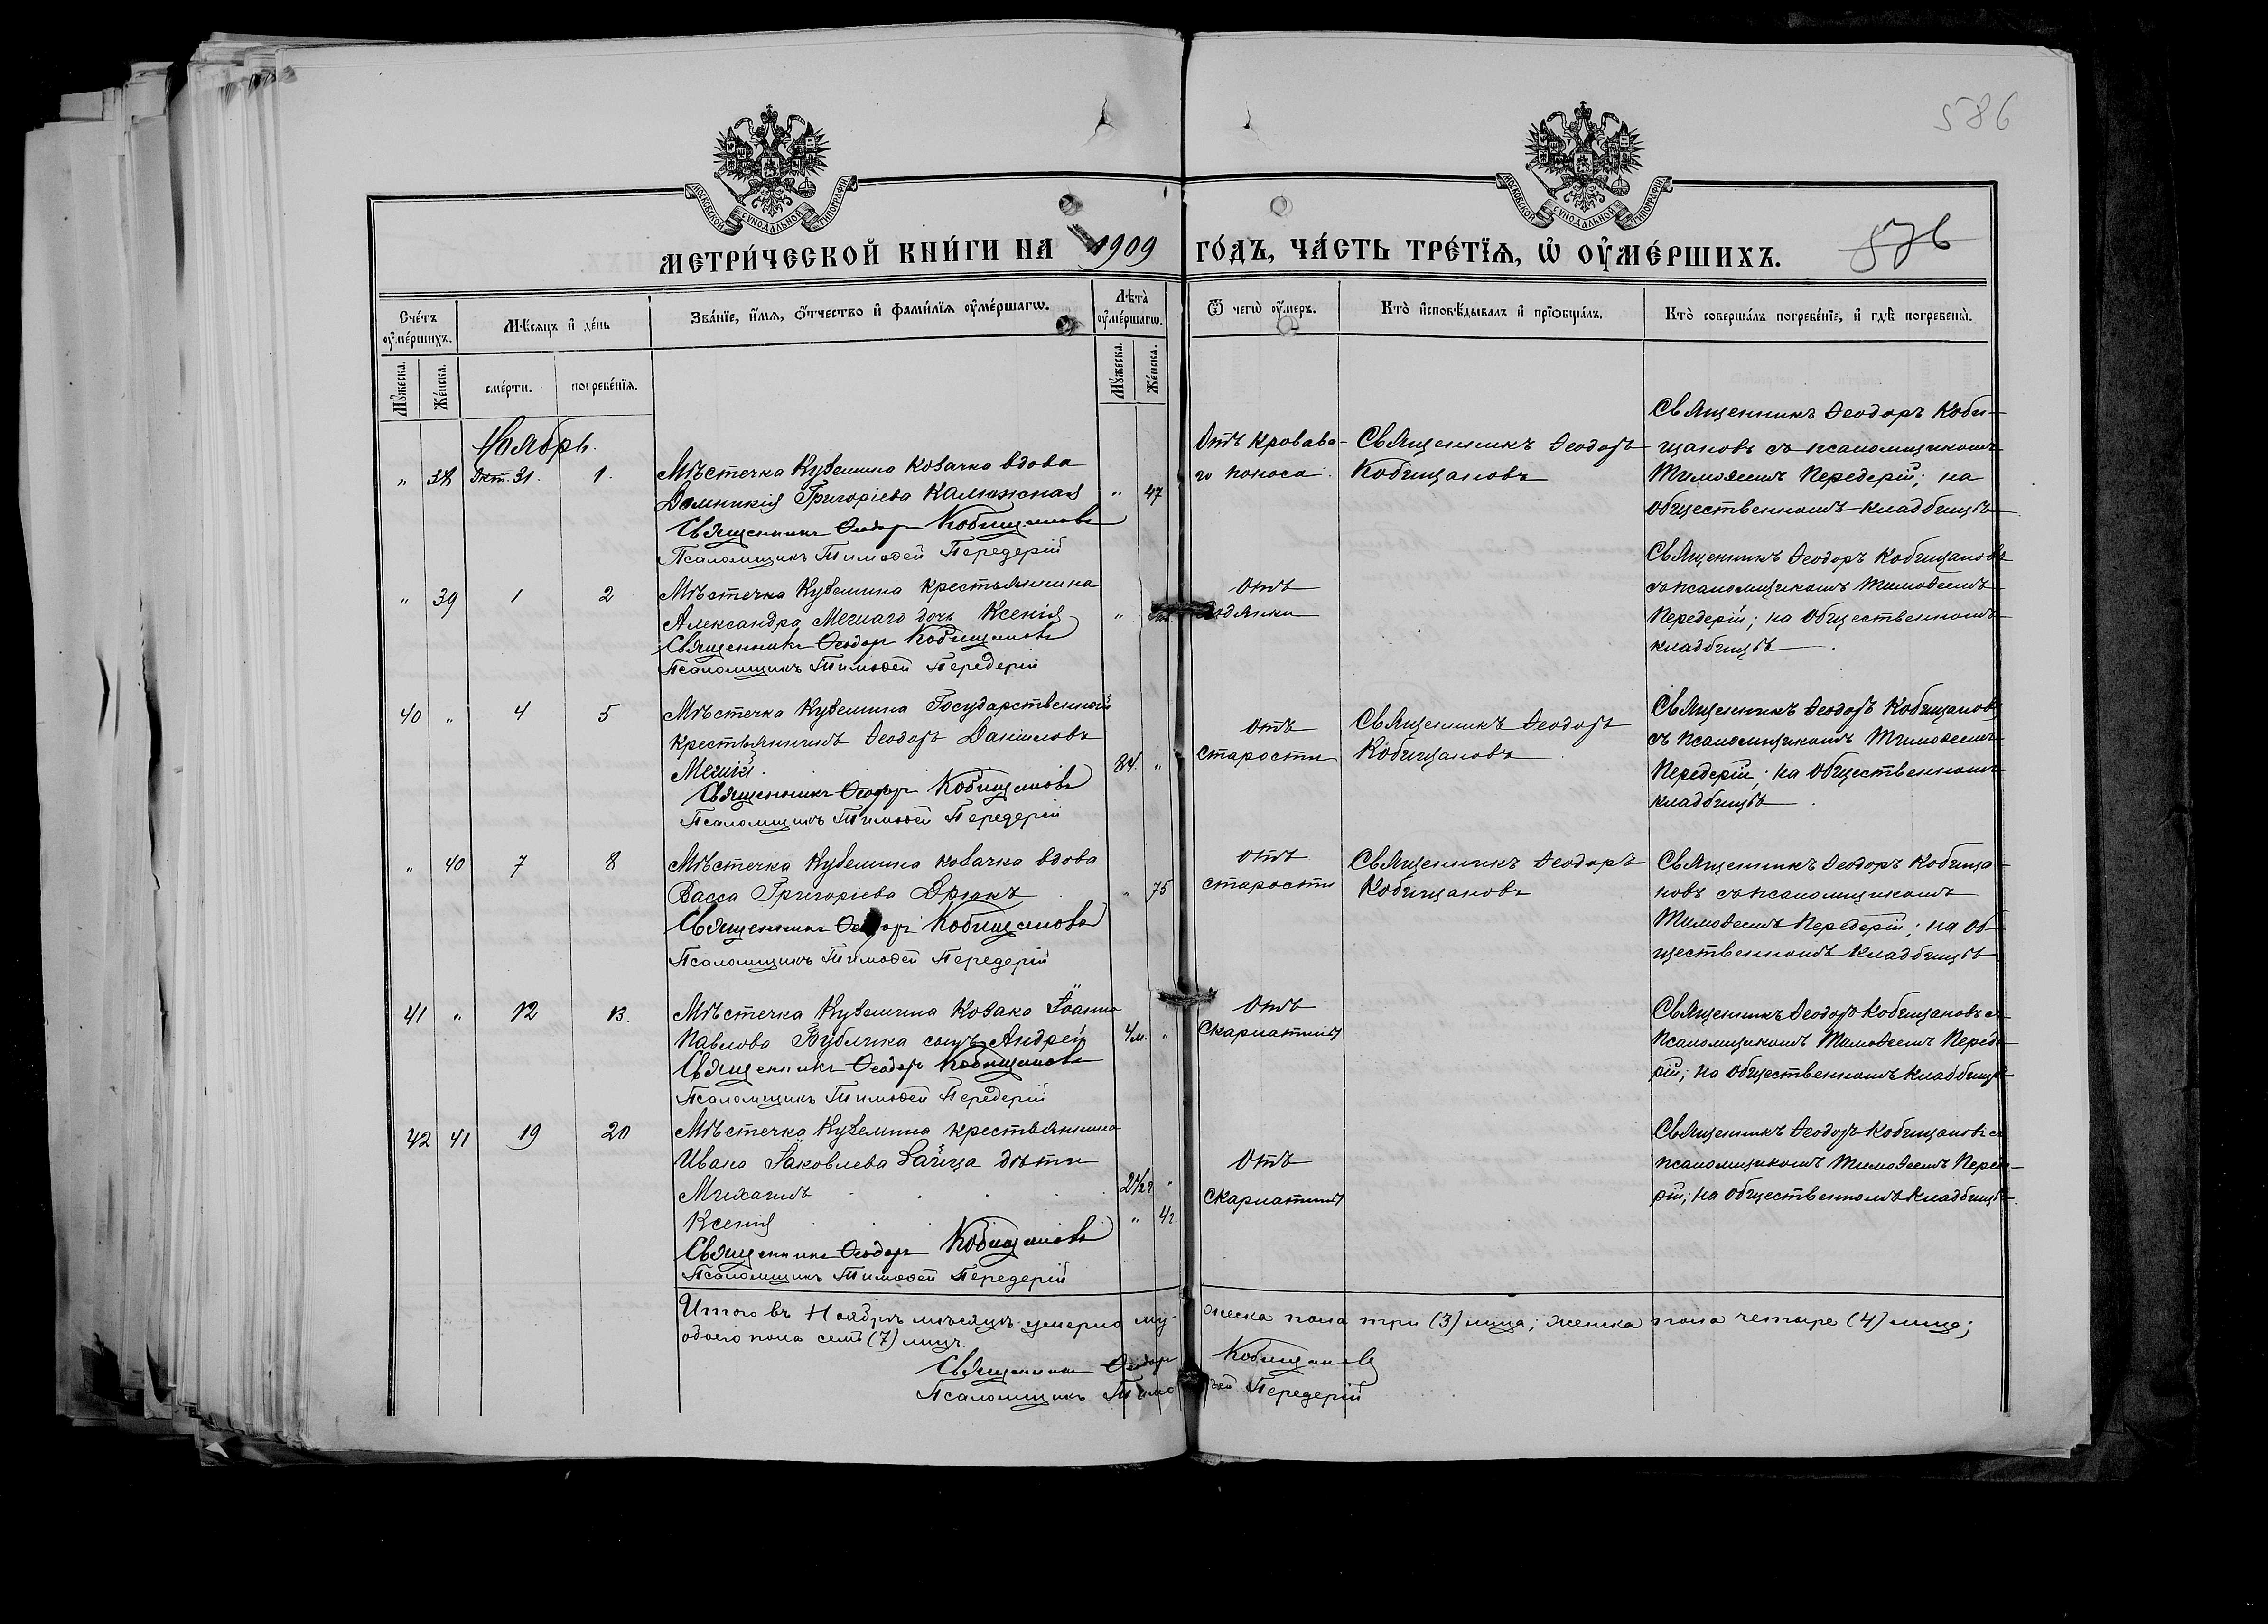 586
МОСКОВСКОЙ СУНОДАЛЬНОЙ ТИПОГРАФІИ
МОСКОВСКОЙ СУНОДАЛЬНОЙ ТИПОГРАФІИ
МЕТРИ́ЧЕСКОЙ КНИ́ГИ НА 1909 ГО́ДЪ, ЧА́СТЬ ТРЕ́ТЇѦ, Ѡ҆ ОУ҆МЕ́РШИХЪ.
576
Сче́тъ оу҆ме́ршихъ.
Мѣ́сѧцъ и҆ де́нь
Зва́нїе, и҆́мѧ, ѻ҆́тчество и҆ фами́лїѧ оу҆ме́ршагѡ.
Лѣ́та оу҆ме́ршагѡ.
Ѿ чегѡ̀ оу҆́меръ.
Кто̀ и҆сповѣ́дывалъ и҆ прїѻбща́лъ.
Кто̀ соверша́лъ погребе́нїе, и҆ гдѣ̀ погребены̀.
Мꙋ́жеска.
Же́нска.
сме́рти.
погребе́нїѧ.
Мꙋ́жеска.
Же́нска.
Ноябрь.
" 38 Окт. 31. 1.
Мѣстечка Куземина козачка вдова
Домникія Григоріева Калюжная " 47
Священникъ Ѳеодоръ Кобищановъ
Псаломщикъ Тимоѳей Передерій
Отъ кроваво-
го поноса.
Священникъ Ѳеодоръ
Кобищановъ
Священникъ Ѳеодоръ Коби-
щановъ съ псаломщикомъ
Тимоѳеемъ Передерій; на
общественномъ кладбищѣ
" 39 1 2
Мѣстечка Куземина крестьянина
Александра Мечиаго дочь Ксенія "
Священникъ Ѳеодоръ Кобищановъ
Псаломщикъ Тимоѳей Передерій
Отъ
водянки
Священникъ Ѳеодоръ Кобищановъ
съ псаломщикомъ Тимоѳеемъ
Передерій; на общественномъ
кладбищѣ.
40 " 4 5
Мѣстечка Куземина Государственный
крестьянинъ Ѳеодоръ Даніиловъ
84. "
Священникъ Ѳеодоръ Кобищановъ
Псаломщикъ Тимоѳей Передерій
Отъ
старости
Священникъ Ѳеодоръ
Кобищановъ
Священникъ Ѳеодоръ Кобищановъ
съ псаломщикомъ Тимоѳеемъ
Передерій; на общественномъ
кладбищѣ.
" 40 7 8
Мѣстечка Куземина козачка вдова
Васса Григоріева Дрюкъ " 75
Священникъ Ѳеодоръ Кобищановъ
Псаломщикъ Тимоѳей Передерій
Отъ
старости
Священникъ Ѳеодоръ
Кобищановъ
Священникъ Ѳеодоръ Кобища-
новъ съ псаломщикомъ
Тимоѳеемъ Передерій; на об-
щественномъ кладбищѣ
41 " 12 13.
Мѣстечка Куземина козака Іоанна
Павлова Бублика сынъ Андрей 4м. "
Священникъ Ѳеодоръ Кобищановъ
Псаломщикъ Тимоѳей Передерій
Отъ
скарлатины
Священникъ Ѳеодоръ Кобищановъ съ
псаломщикомъ Тимоѳеемъ Переде-
рій; на общественномъ кладбищѣ
42 41 19 20
Мѣстечка Куземина крестьянина
Ивана Іаковлева Зайца дѣти
Михаилъ 2 1/2 г. "
Ксенія " 4г.
Священникъ Ѳеодоръ Кобищановъ
Псаломщикъ Тимоѳей Передерій
Отъ
скарлатины
Священникъ Ѳеодоръ Кобищановъ съ
псаломщикомъ Тимоѳеемъ Переде-
рій; на общественномъ кладбищѣ.
Итого въ Ноябрѣ мѣсяцѣ умерло му-жеска пола три (3) лица; женска пола четыре (4) лица;
обоего пола семь (7) лицъ.
Священникъ Ѳеодоръ Кобищановъ
Псаломщикъ Тимоѳей Передерій